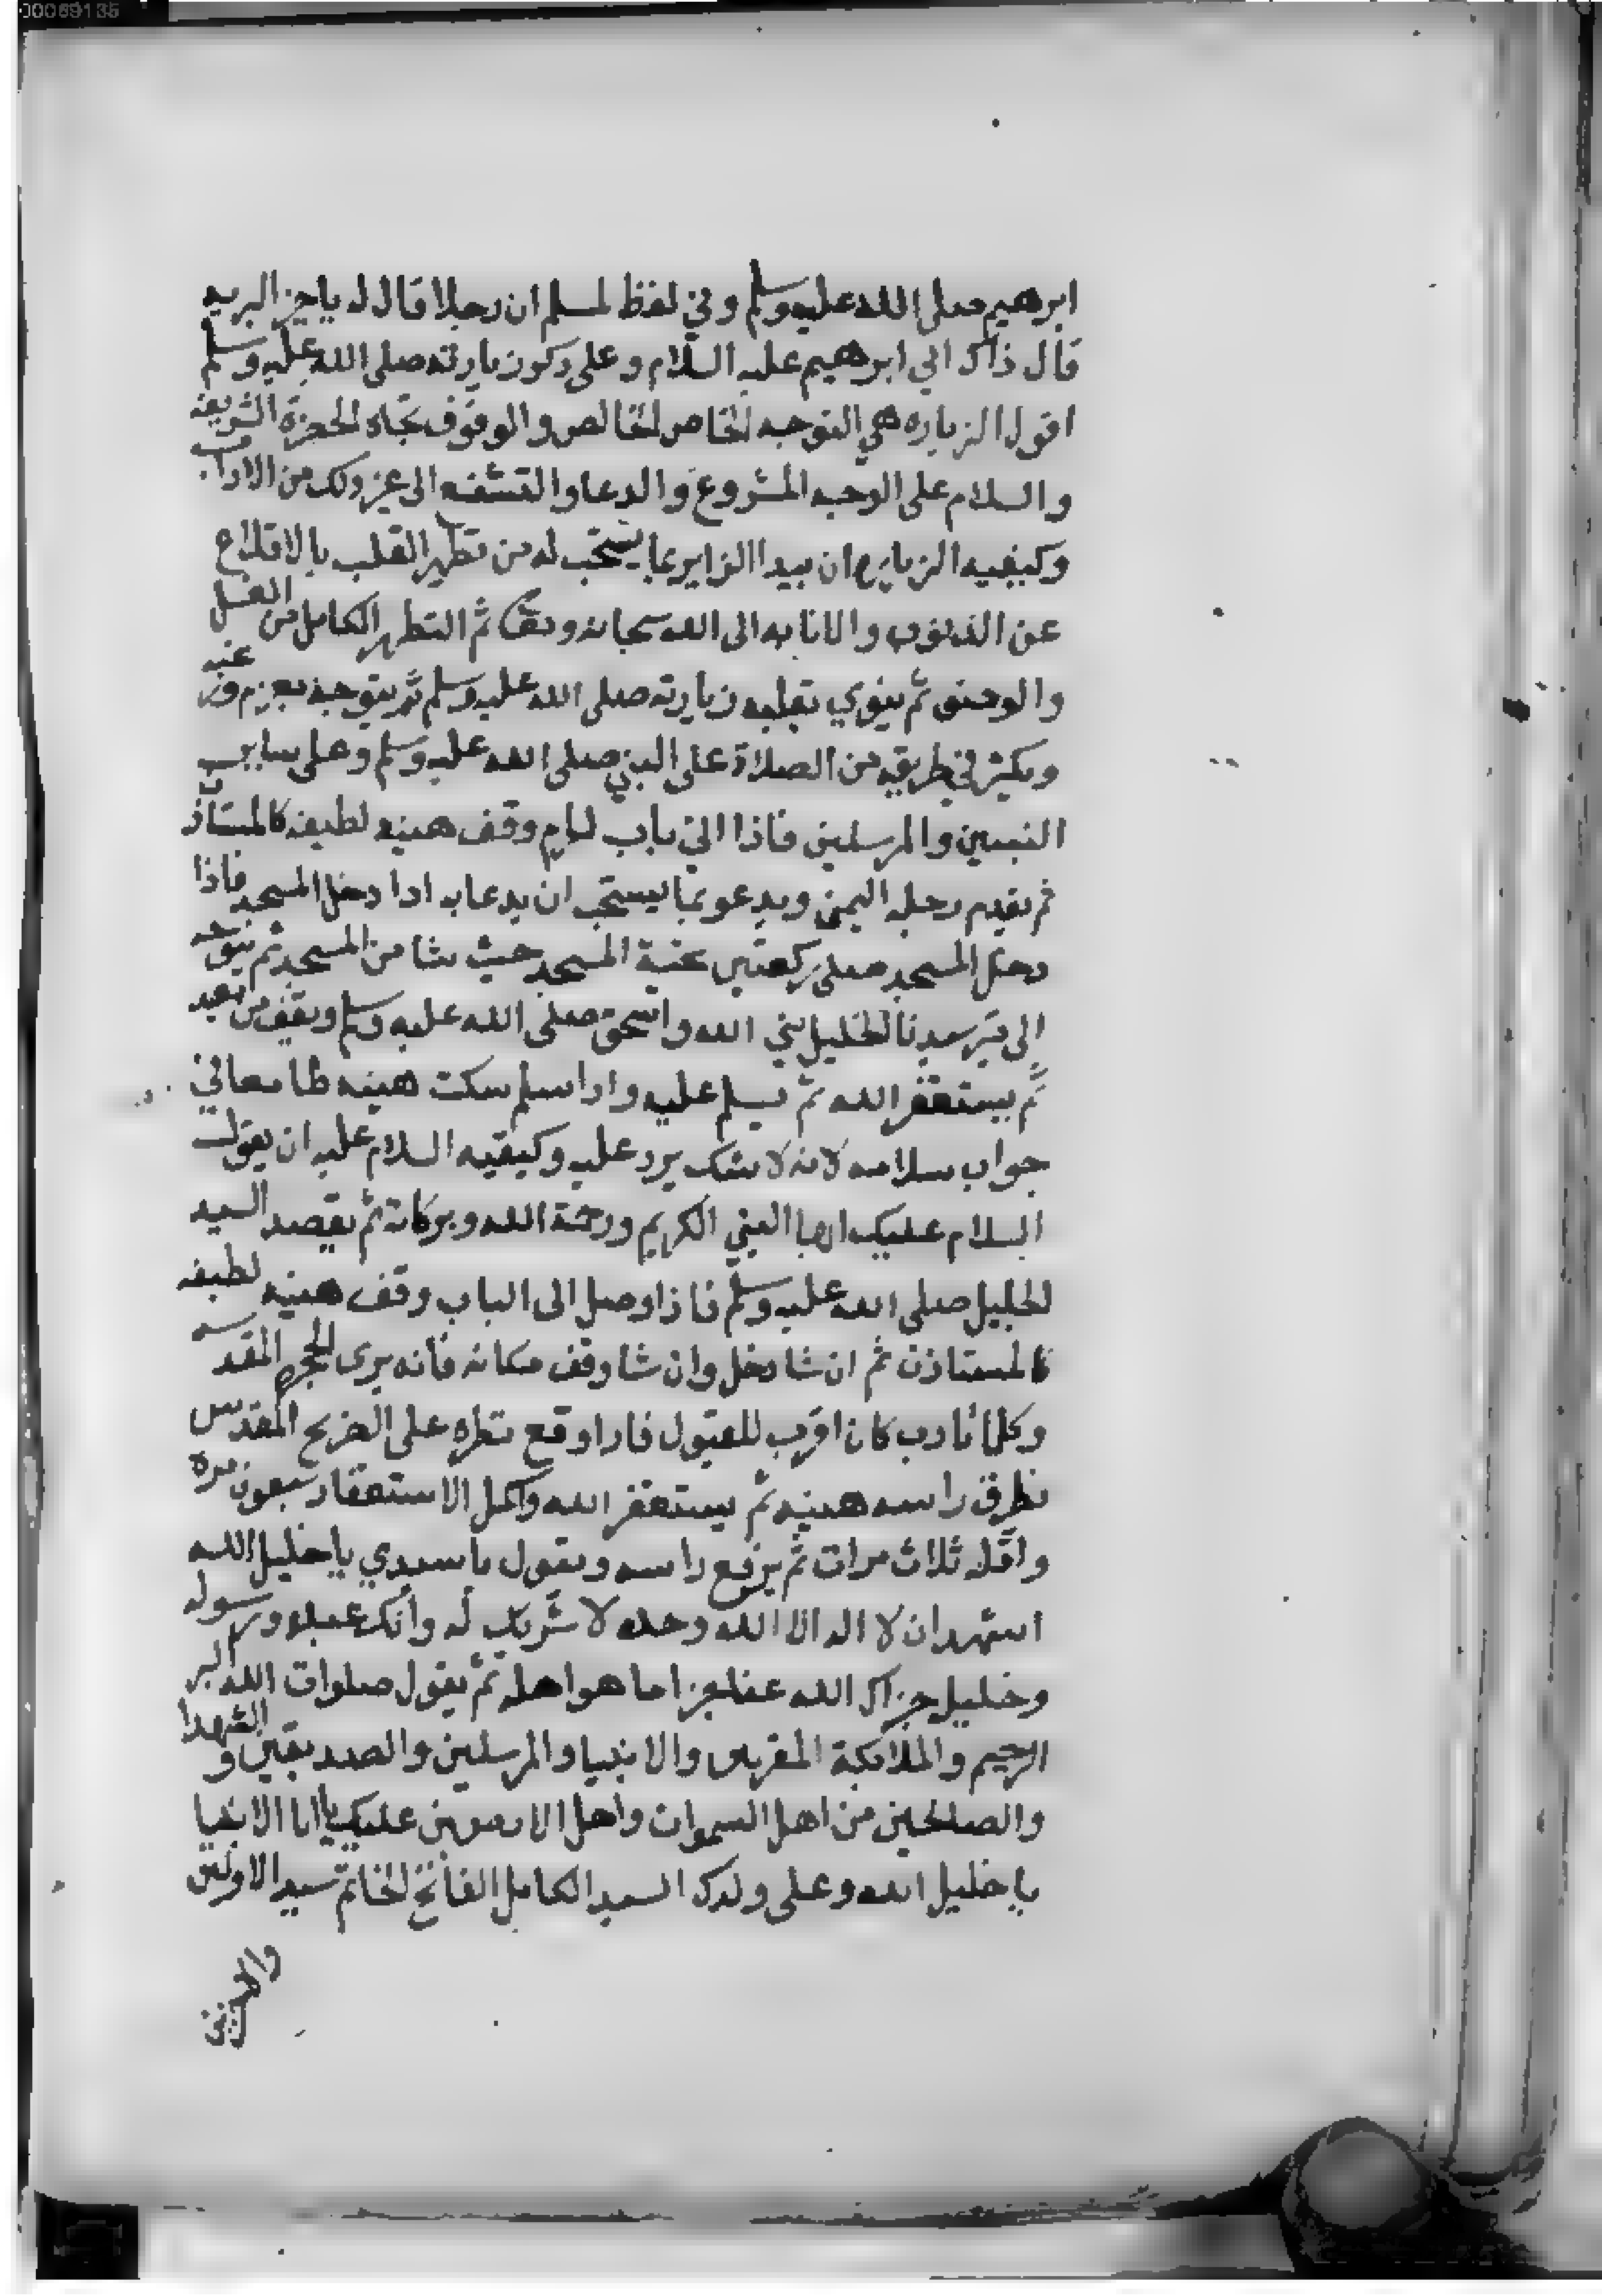 00069135
ابرهيم صلى الله عليه وسلم وفي لفظ لمسلم ان رجلا قال له يا خير البريه
قال ذاك ابي ابرهيم عليه السلام وعلى ذكر زيارته صلى الله عليه وسلم
اقول الزياره هي التوجه الخاص الخالص والوقوف تجاه الحضرة الشريفه
والسلام على الوجه المشروع والدعا والتشفع الى غير ذلك من الاداب
وكيفيه الزياره ان يبدا الزاير بما يستحب له من تطهر القلب بالاقلاع
عن الذنوب والانابه الى الله سبحانه وتعالى ثم التطهر الكامل من الغسل
والوضو ثم ينوي بقلبه زيارته صلى الله عليه وسلم ثم يتوجه بعزم ورغبه
ويكثر في طريقه من الصلاة على النبي صلى الله عليه وسلم وعلى ساير
النبيين والمرسلين فاذا اتى باب الحرم وقف هنيه لطيفه كالمستاذن
ثم يقدم رجله اليمنى ويدعو بما يستحب ان يدعا به اذا دخل المسجد فاذا
دخل المسجد صلى ركعتين تحية المسجد حيث شا من المسجد ثم يتوجه
الى قبر سيدنا الخليل نبي الله واسحق صلى الله عليه وسلم ويقف من بعيد
ثم يستغفر الله ثم يسلم عليه واذا سلم سكت هنيه طامعا في
جواب سلامه لانه لا شك يرد عليه وكيفيه السلام عليه ان يقول
السلام عليك ايها النبي الكريم ورحمة الله وبركاته ثم يقصد السيد
الخليل صلى الله عليه وسلم فاذا وصل الى الباب وقف هنيه لطيفه
كالمستاذن ثم ان شا دخل وان شا وقف مكانه فانه يرى الحجره المقدسه
وكلما تادب كان اقرب للقبول فاذا وقع نظره على الضريح المقدس
نطرق راسه هنيه ثم يستغفر الله واكمل الاستغفار سبعون مره
واقله ثلاث مرات ثم يرفع راسه ويقول يا سيدي يا خليل الله
اشهد ان لا اله الا الله وحده لا شريك له وانك عبده ورسوله
وخليله جزاك الله عنا خيرا ما هو اهله ثم يقول صلوات الله البر
الرحيم والملائكة المقربين والانبيا والمرسلين والصديقين والشهدا
والصالحين من اهل السموات واهل الارضين عليك يا ابا الانبيا
يا خليل الله وعلى ولدك السيد الكامل الفاتح الخاتم سيد الاولين
والاخرين